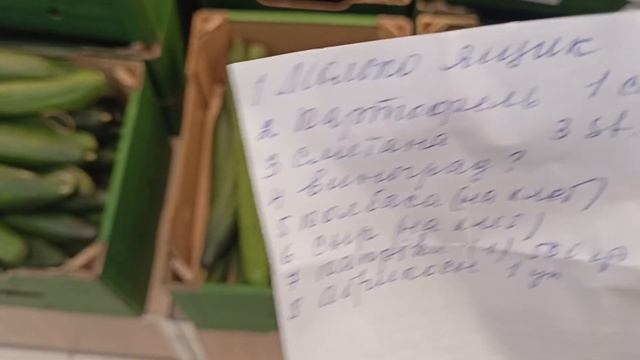 1 Молоко ящик
2 Картофель 1 с
3 сметана 3 st
4 виноград ?
5 колбаса (на хлеб)
6 сыр (на хлеб)
7
8 абрикосы 1 уп